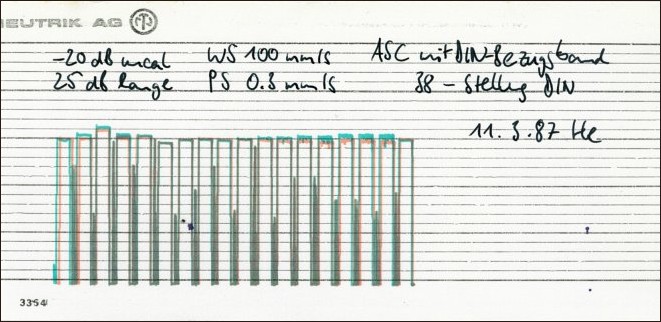 NEUTRIK AG
-20 dB uncal WS 100 mm/s ASC mit DIN-Bezugsband
25 dB Range PS 0.3 mm/s 38-Stellung DIN
11.3.87 He
3354